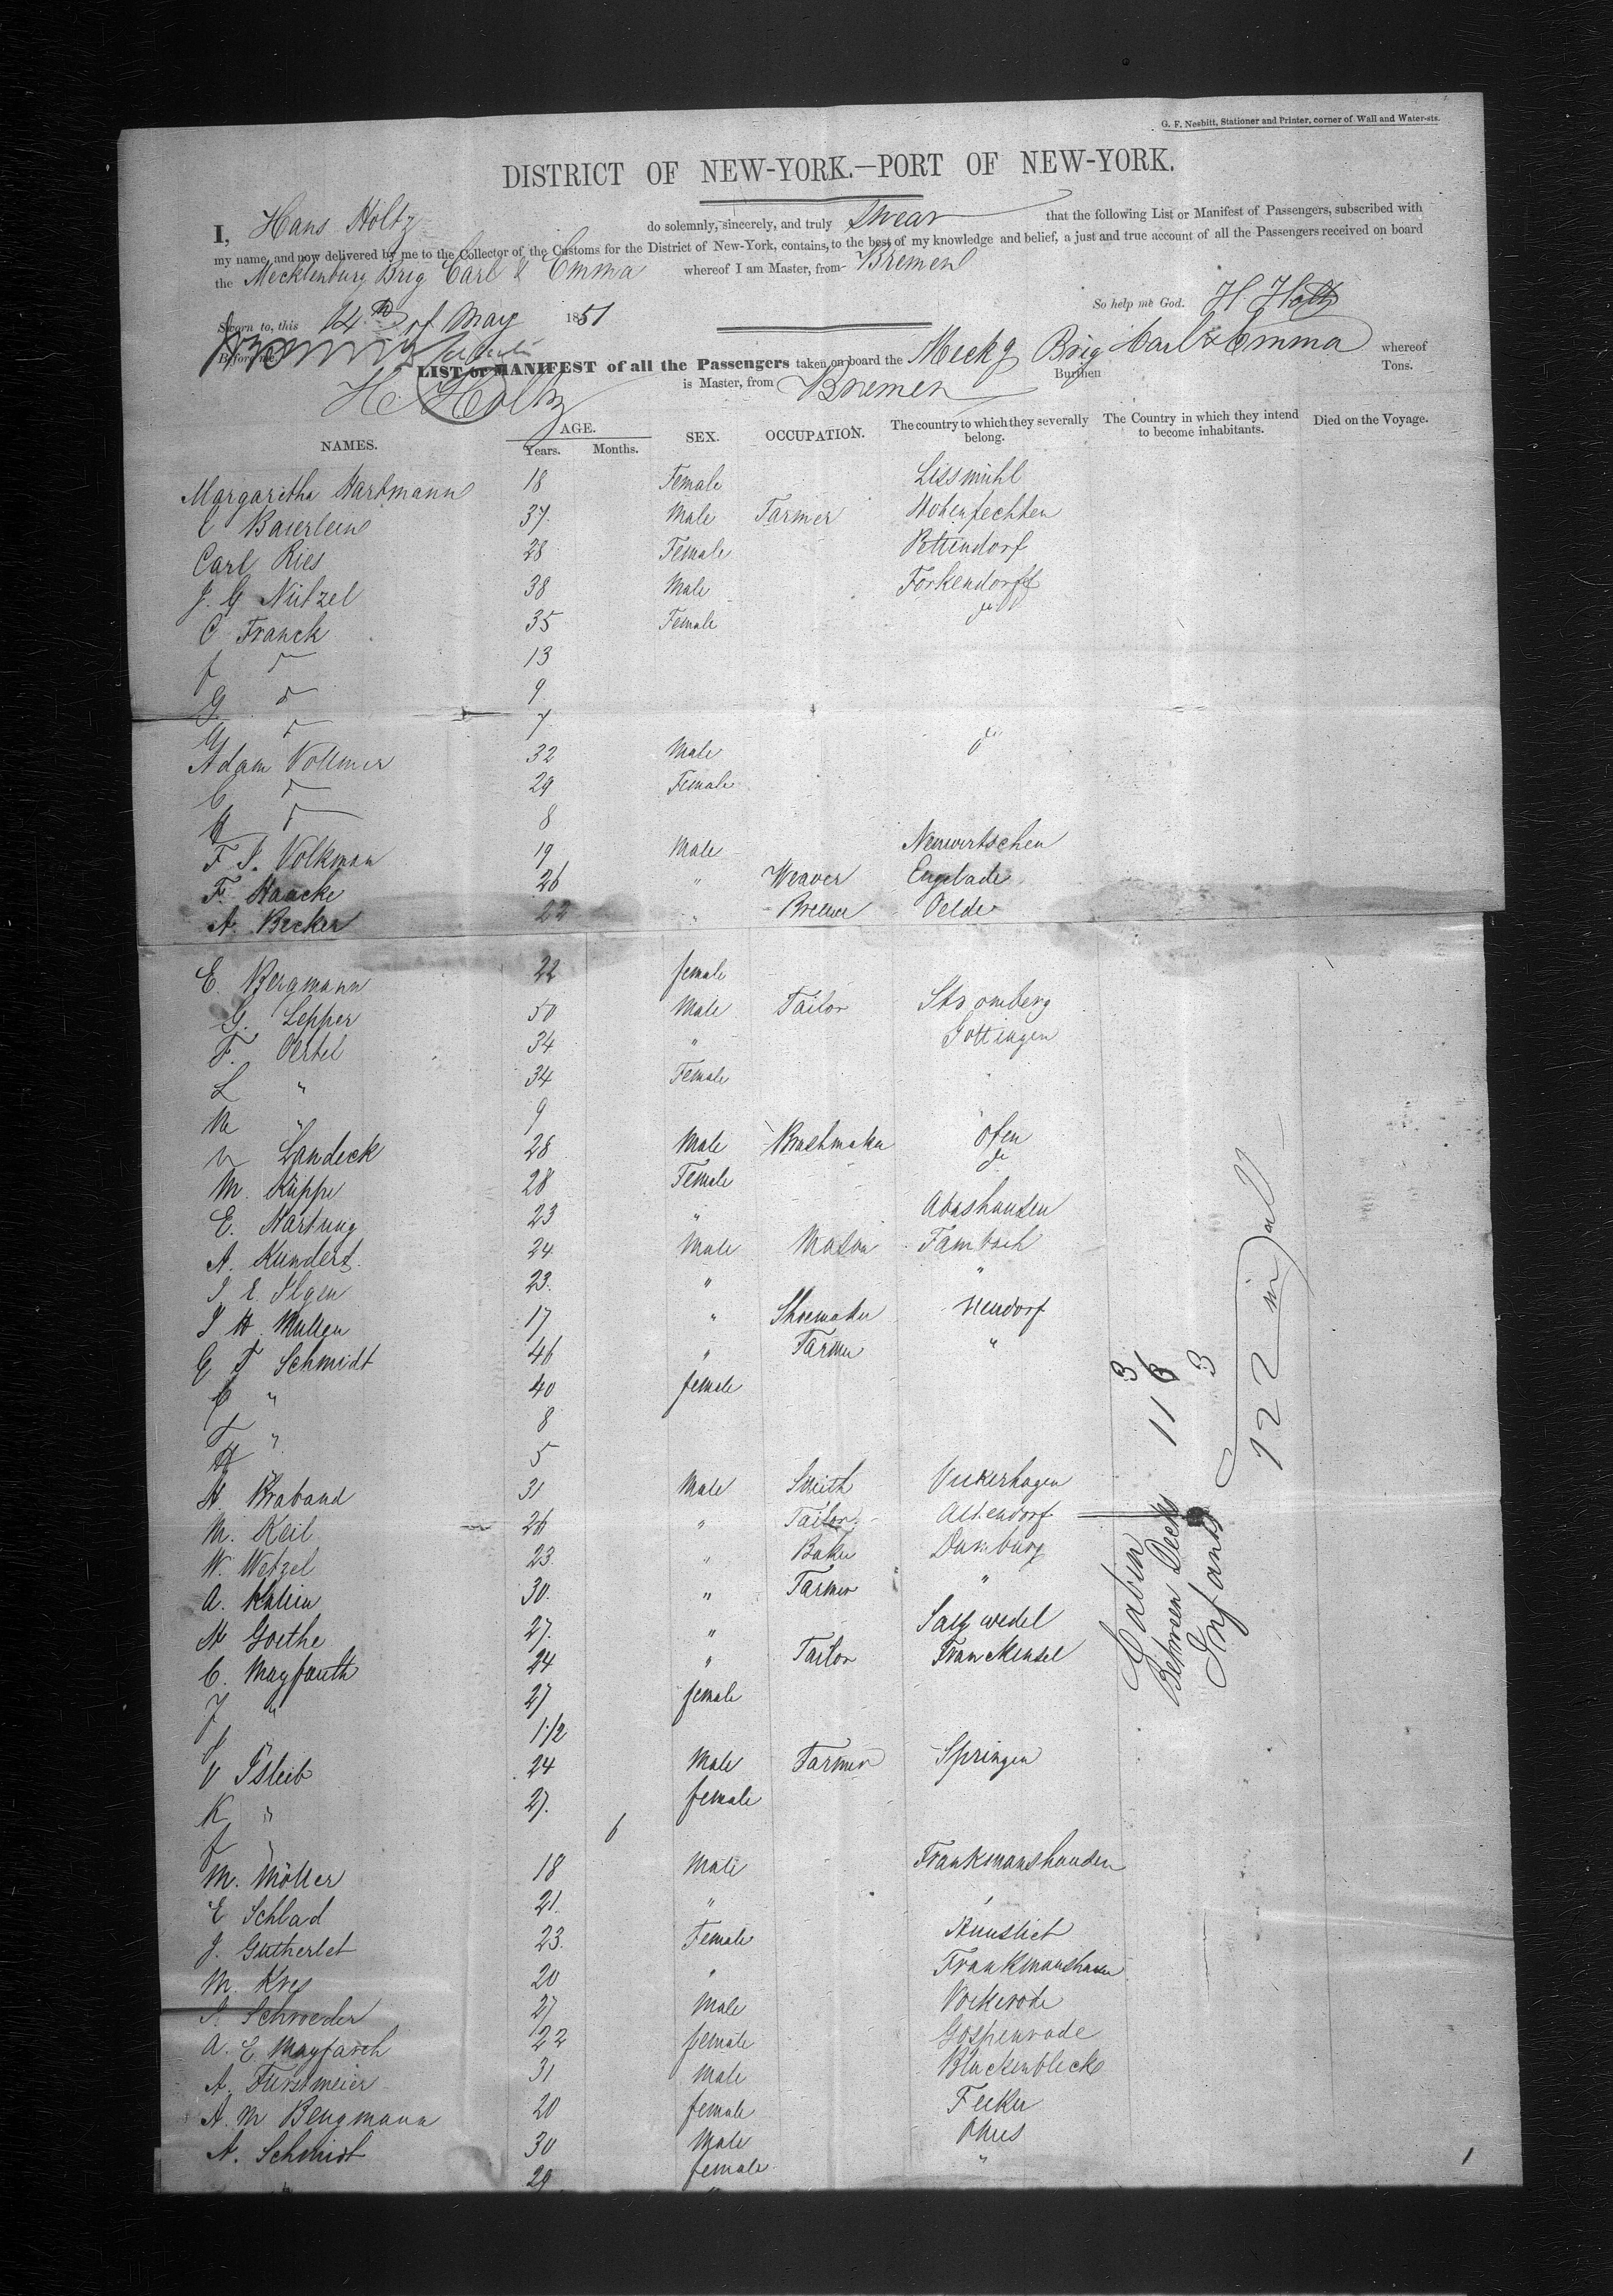 G. F. Nesbitt, Stationer and Printer, corner of Wall and Water-sts.
DISTRICT OF NEW-YORK.—PORT OF NEW-YORK.
I, Hans Holtz do solemnly, sincerely, and truly Swear that the following List or Manifest of Passengers, subscribed with
my name, and now delivered by me to the Collector of the Customs for the District of New-York, contains, to the best of my knowledge and belief, a just and true account of all the Passengers received on board
the Mecklenburg Brig Carl & Emma whereof I am Master, from Bremen
Sworn to, this 14th of May 1851 So help me God. H. Holtz
Before me,
LIST or MANIFEST of all the Passengers taken on board the Meckg Brig Carl & Emma whereof
H. Holtz is Master, from Bremen Burthen Tons.
NAMES. AGE. Years. Months. SEX. OCCUPATION. The country to which they severally belong. The Country in which they intend to become inhabitants. Died on the Voyage.
Margaritha Hartmann 18 Female Lissmühl
C Baierlein 37 Male Farmer Hohenfechten
Carl Ries 28 Female Pettendorf
J. G Nützel 38 Male Forkendorff
C Franck 35 Female do
f 13
G 9
7
Adam Vollmer 32 Male do
C 29 Female
8
F. J. Volkman 19 Male
F. Haacke 26 " Weaver Engelade
A. Becker 22 " Oelde
E. Bergmann 22 female
G. Lepper 50 Male Tailor Stromberg
F. Oertel 34 " Gottingen
L " 34 Female
M " 9
Landeck 28 Male Brushmaker Ofen
M. Küppe 28 Female do
E. Hartung 23 " Abashausen
A. Kundert 24 Male Mason Fambach
J. E. Ilgen 23. " "
J H Muller 17 " Shoemaker Neudorf
G F Schmidt 46 " Farmer "
C " 40 female
F " 8
H " 5
H. Braband 31 Male Smith Vickerhagen
M. Keil 26 " Tailor Allendorf
W. Wetzel 23 " Baker Damburg
A. 30. " Farmer "
N Goethe 27. " Salzwedel
C. Mayfarth 24 " Tailor
J " 27 female
1 1/2
V Isleib 24 Male Farmer Springen
K " 27. female
f " 6
M. Möller 18 Male Frankmanshausen
E Schlad 21. "
J. Gutherlet 23. Female
M. Kres 20 " Frankmanshausen
J. Schroeder 27 Male Vockerode
A. E Mayfarth 22 female Gospenrode
A. Furstmeier 31 Male
A. M Bengmann 20 female
A. Schmidt 30 Male
" 29 female "
Cabin 3
Between Decks 116
Infants 3
122 in all
1